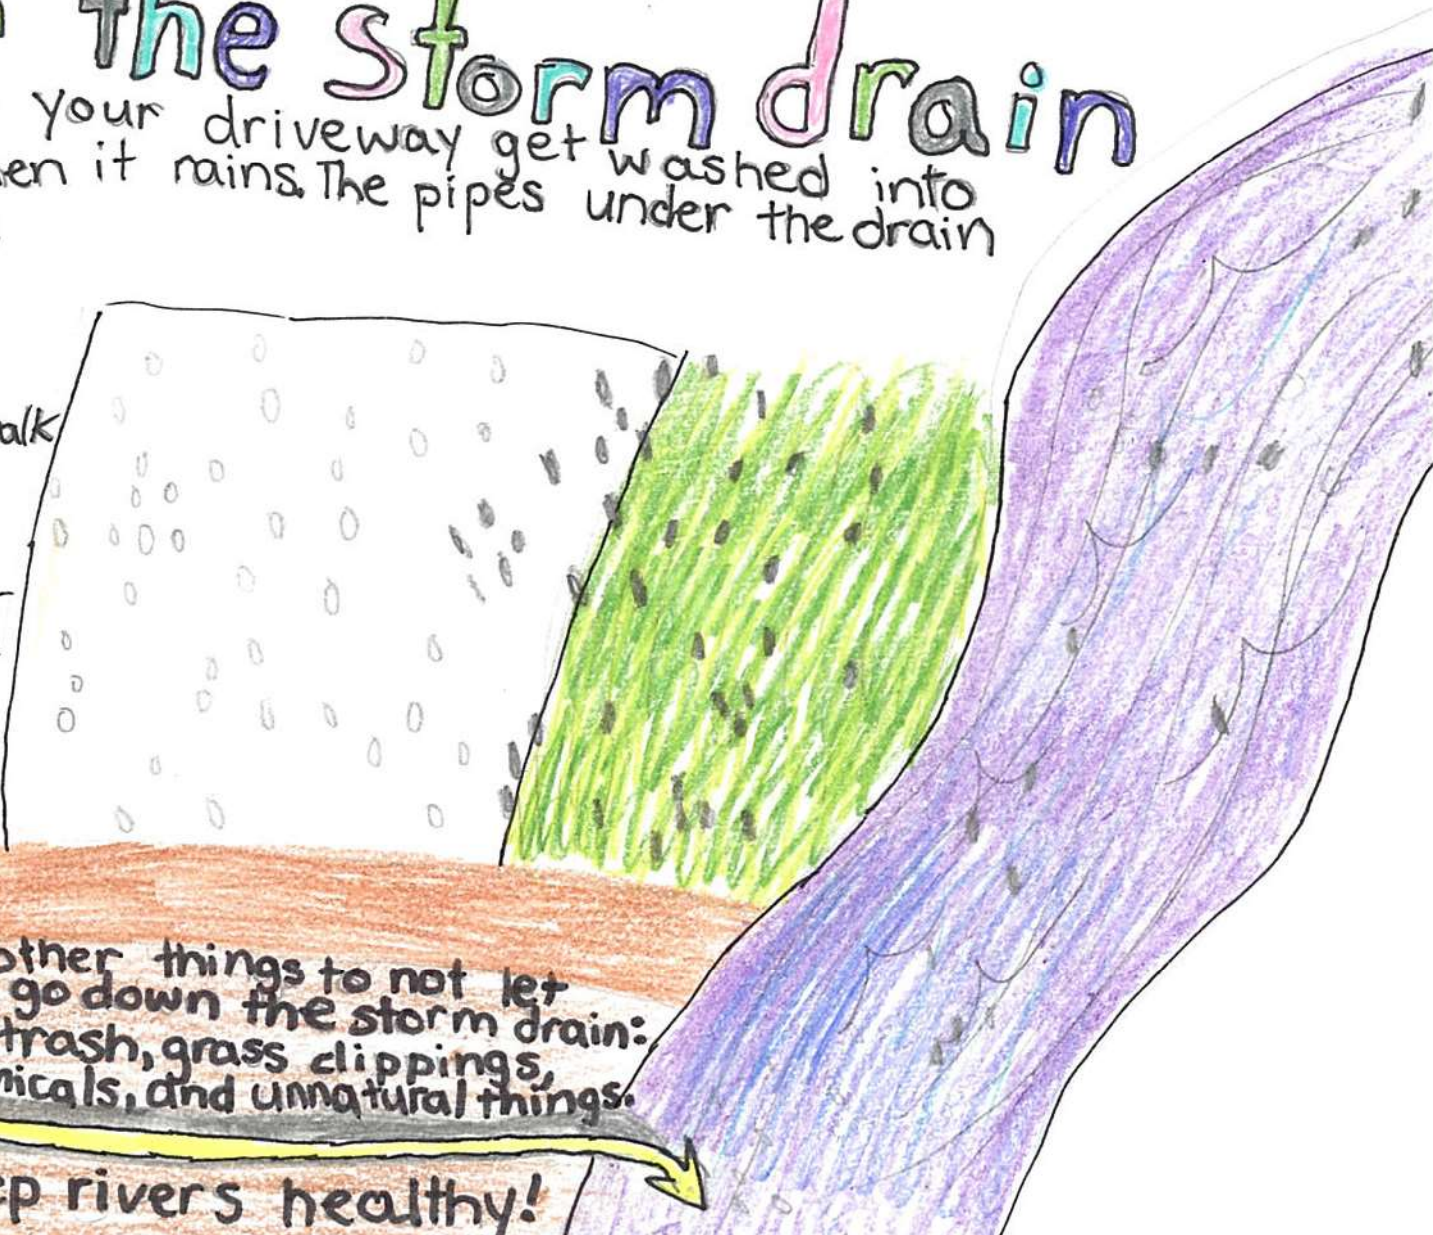 the storm drain
your driveway get washed into
en it rains. The pipes under the drain
alk
other things to not let
go down the storm drain:
trash, grass clippings,
micals, and unnatural things.
p rivers healthy!